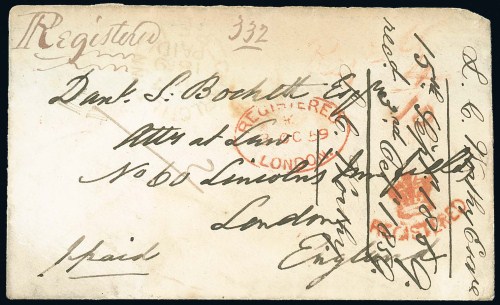 Registered
332
Danl. S. Bockett Esqr
Atty at Law
No 60 Lincoln's Inn fields
London
England
Ppaid
REGISTERED
OC 59
LONDON
REGISTERED
15th Septr 1859.
recd. 3rd Oct 1859.